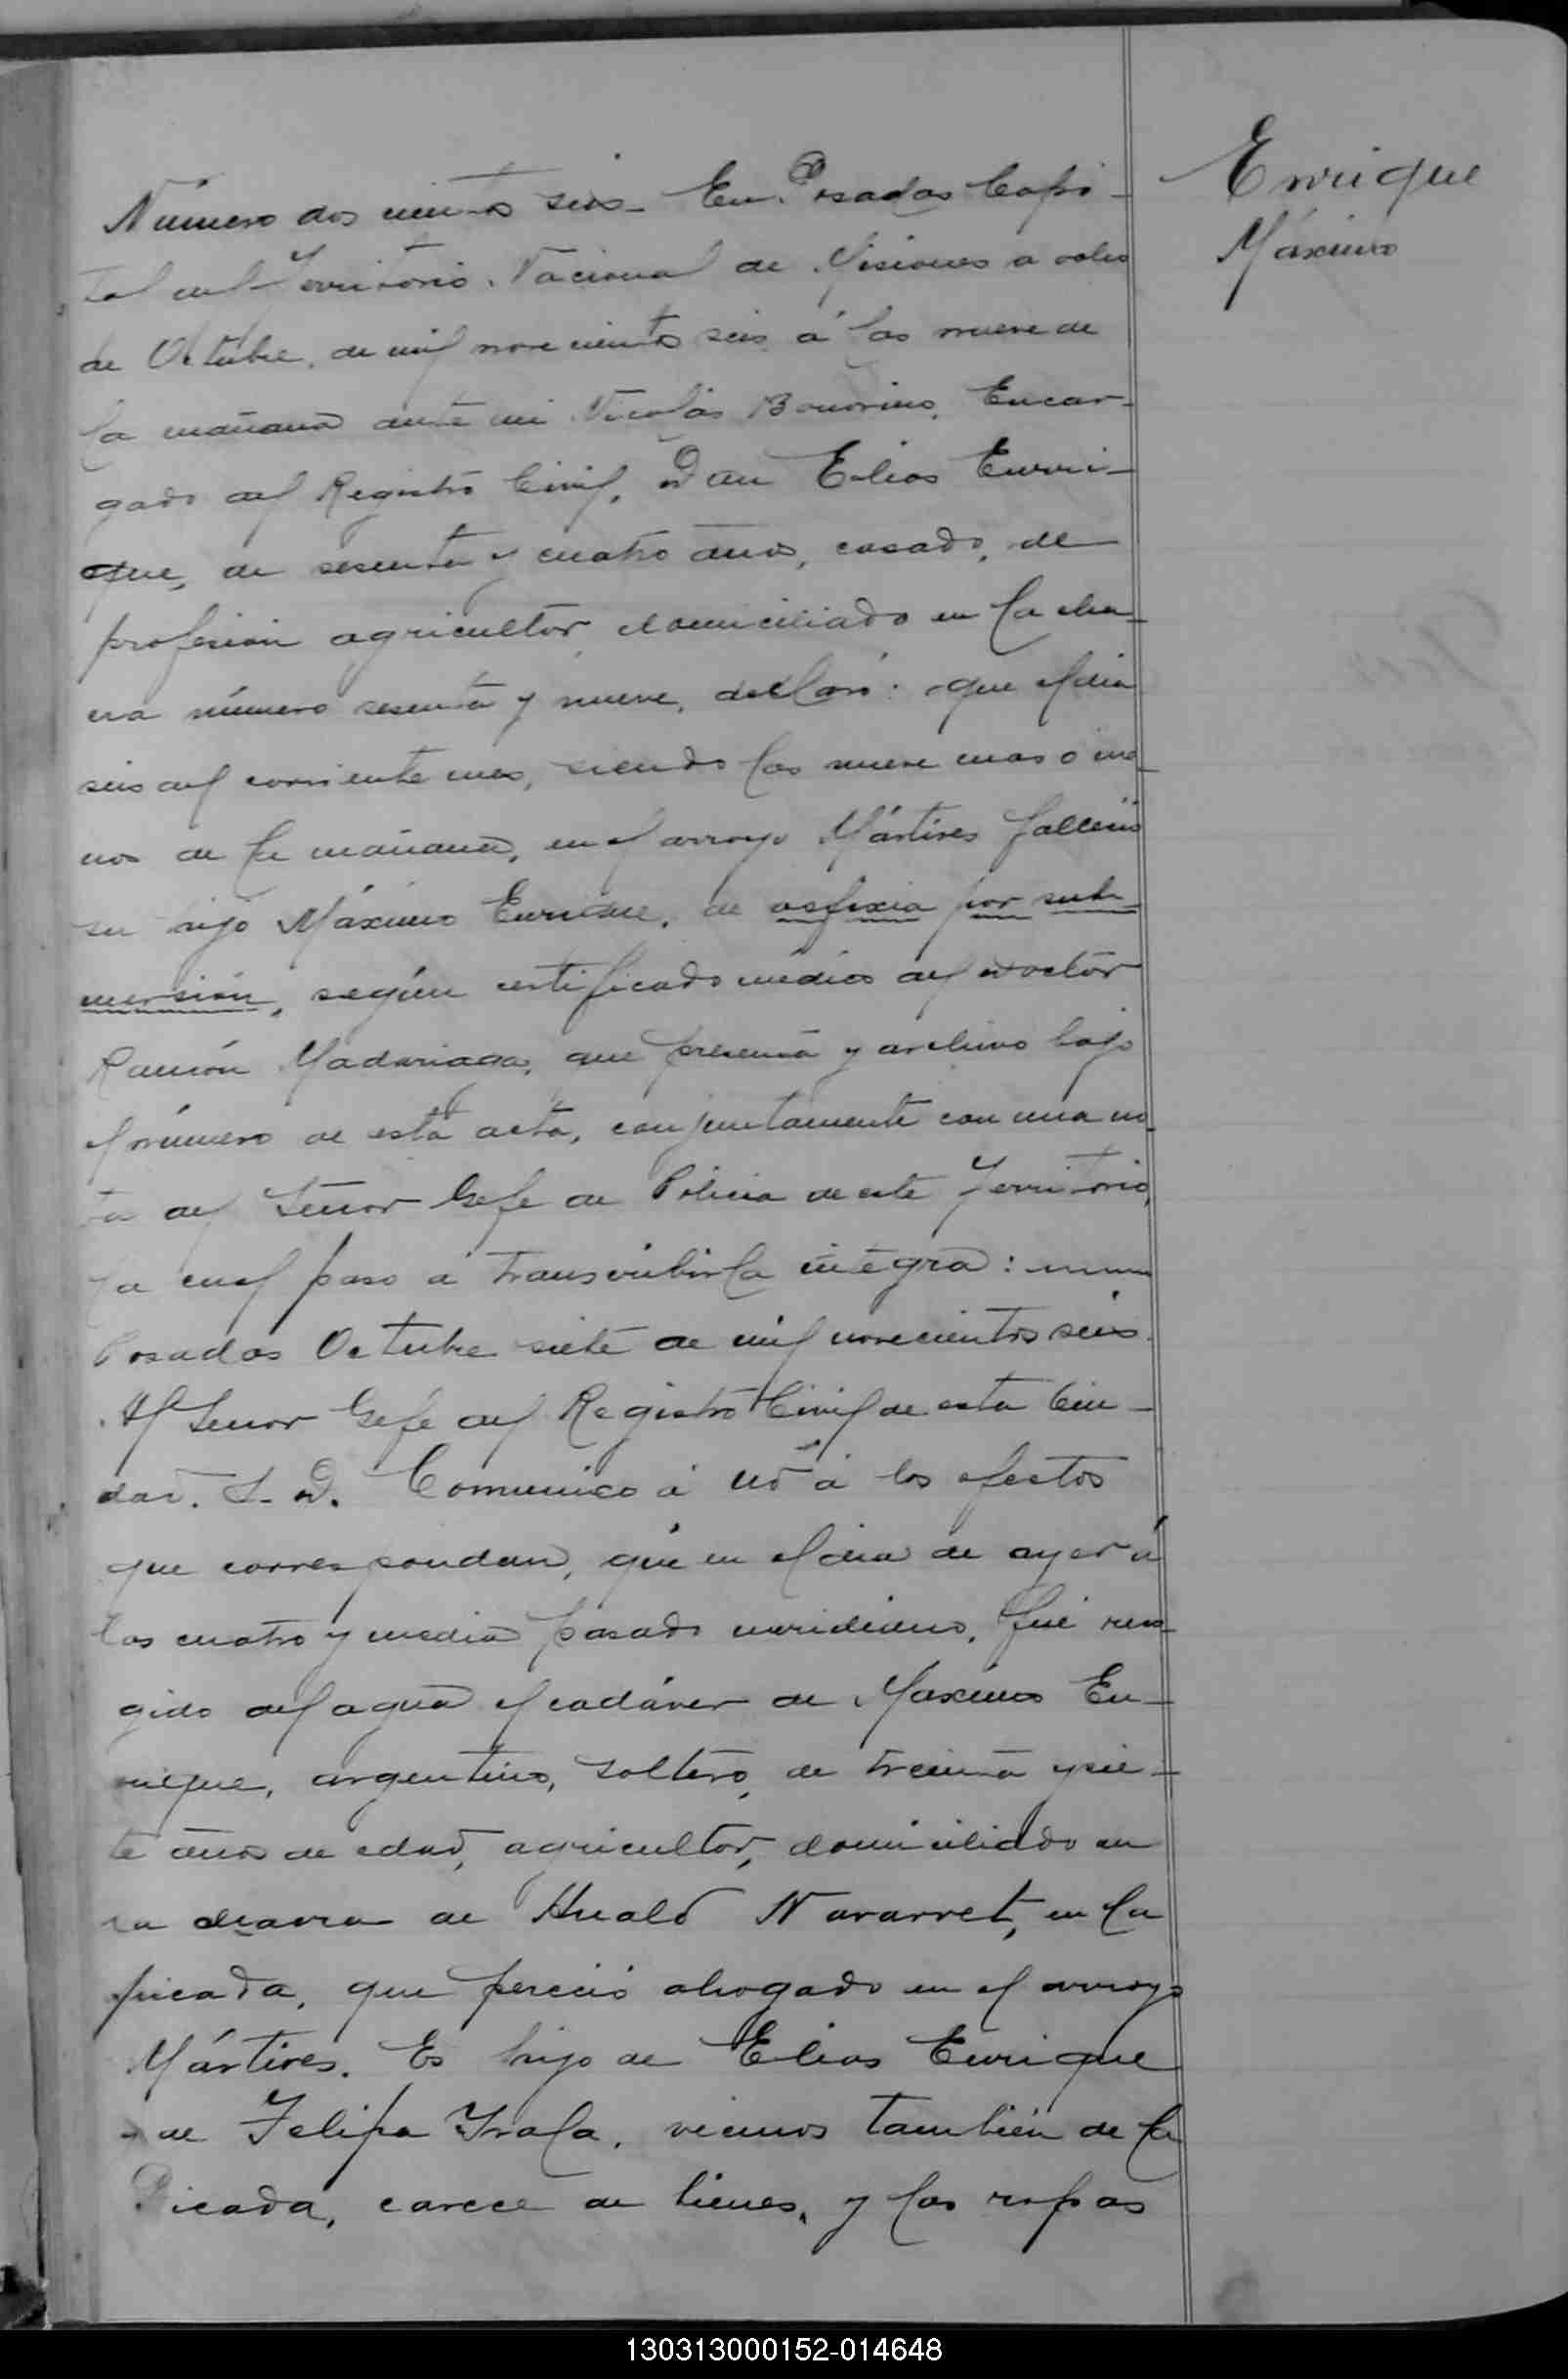 Enrique
Máximo
Número dos cientos seis - En Posadas Capi-
tal del Territorio Nacional de Misiones a ocho
de Octubre, de mil novecientos seis á las nueve de
la mañana ante mi Nicolás Bonorino, Encar-
gado del Registro Civil, Don Elias Enrri-
que, de sesenta y cuatro años, casado, de
profesión agricultor domiciliado en la cha-
cra número sesenta y nueve, declaró: que el dia
seis del corriente mes, siendo las nueve mas o me-
nos de la mañana, en el arroyo Mártires falleció
su hijo Máximo Enrrique, de asfixia por sub-
mersión, según certificado médico del Doctor
Ramón Madariaga, que presenta y archivo bajo
el número de esta acta, conjuntamente con una no-
ta del Señor Gefe de Policia de este Territorio,
la cual paso a transcribirla integra:
Posadas Octubre siete de mil novecientos seis.
Al Señor Gefe del Registro Civil de esta Ciu-
dad. S. D. Comunico á Ud á los efectos
que correspondan, que en el dia de ayer á
las cuatro y media pasado meridiano, fué
gido del agua el cadáver de Maximo En-
rrique, argentino, soltero, de treinta y sie-
te años de edad, agricultor, domiciliado en
la chacra de Navarret, en la
picada, que pereció ahogado en el arroyo
Mártires. Es hijo de Elias Enrrique
de Felipa Irala, vecinos también de la
Picada, carece de bienes, y las ropas
130313000152-014648